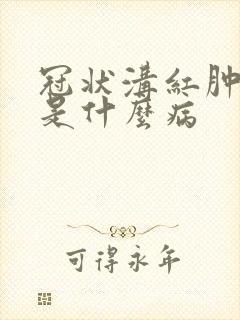 冠狀溝紅肿
是什麼病
可得永年